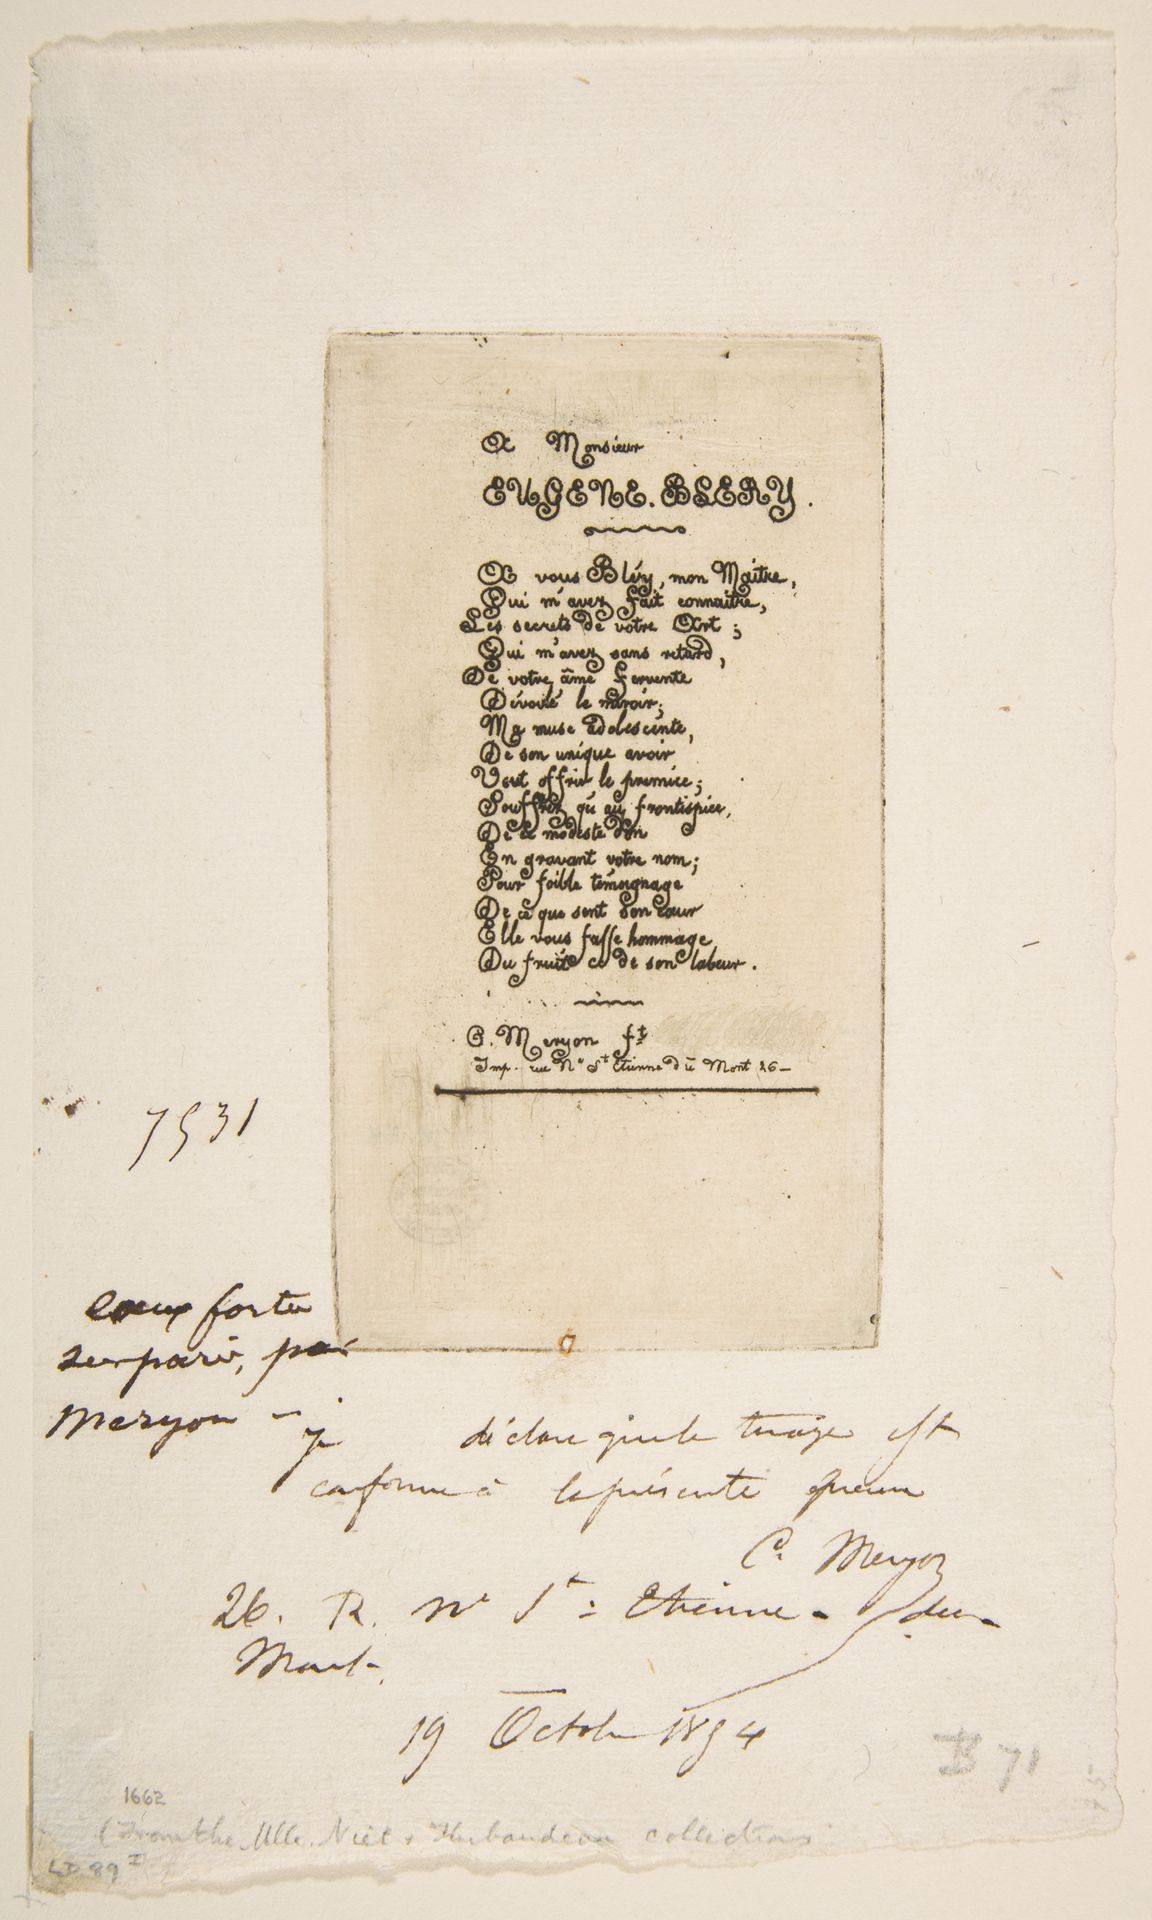 A Monsieur
EUGENE. BLERY.
A vous Bléry, mon Maitre,
Qui m'avez fait connaitre,
Les secrets de votre Art;
Qui m'avez sans retard,
De votre âme fervente
Dévoilé le miroir;
Ma muse adolescente,
De son unique avoir
Veut offrir le premice;
Souffrez qu'au frontispice,
De ce modeste don
En gravant votre nom;
Pour foible témoignage
De ce que sent son cœur
Elle vous fasse hommage
Du fruit ce de son labeur.
C. Meryon ft
Imp. rue Ne St Etienne du Mont 26 —
7531
eaux fortes
sur paris, par
Meryon —
je déclare que le tirage est
conforme à la présente épreuve
C. Meryon
26. R. Ne St: Etienne - du -
Mont.
19 Octobre 1854
B 71
1662
(From the Mlle. Niel & Thibaudeau collections
LD 89 I